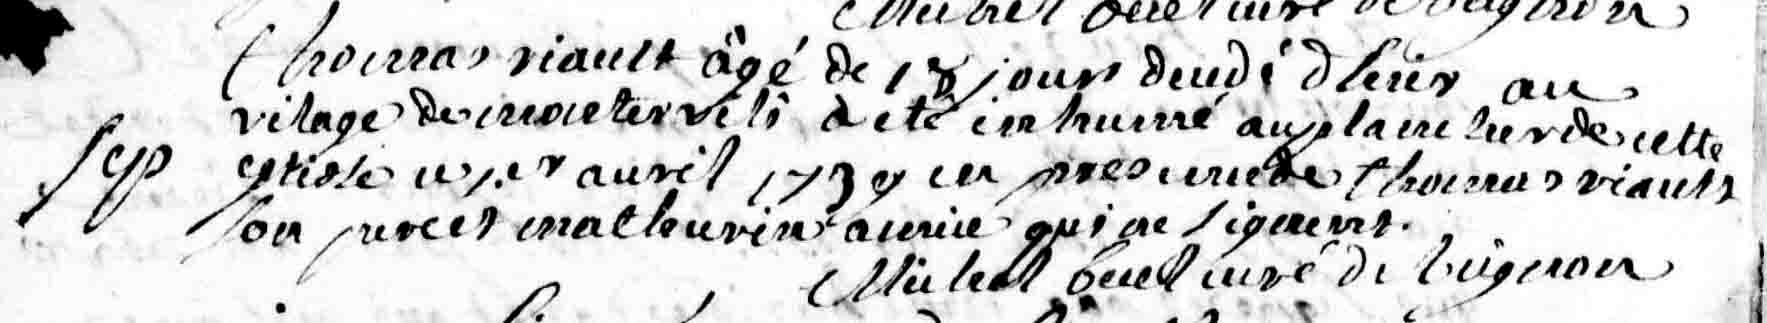 Michel curé de bugnon
thomas riault âgé de 18 jours decedé d'hier au
vilage de a eté inhumé au de cette
Sep eglise ce 1.er avril 1739 en presence de thomas riault
son pere et mathurin qui ne signent.
Michel curé de bugnon